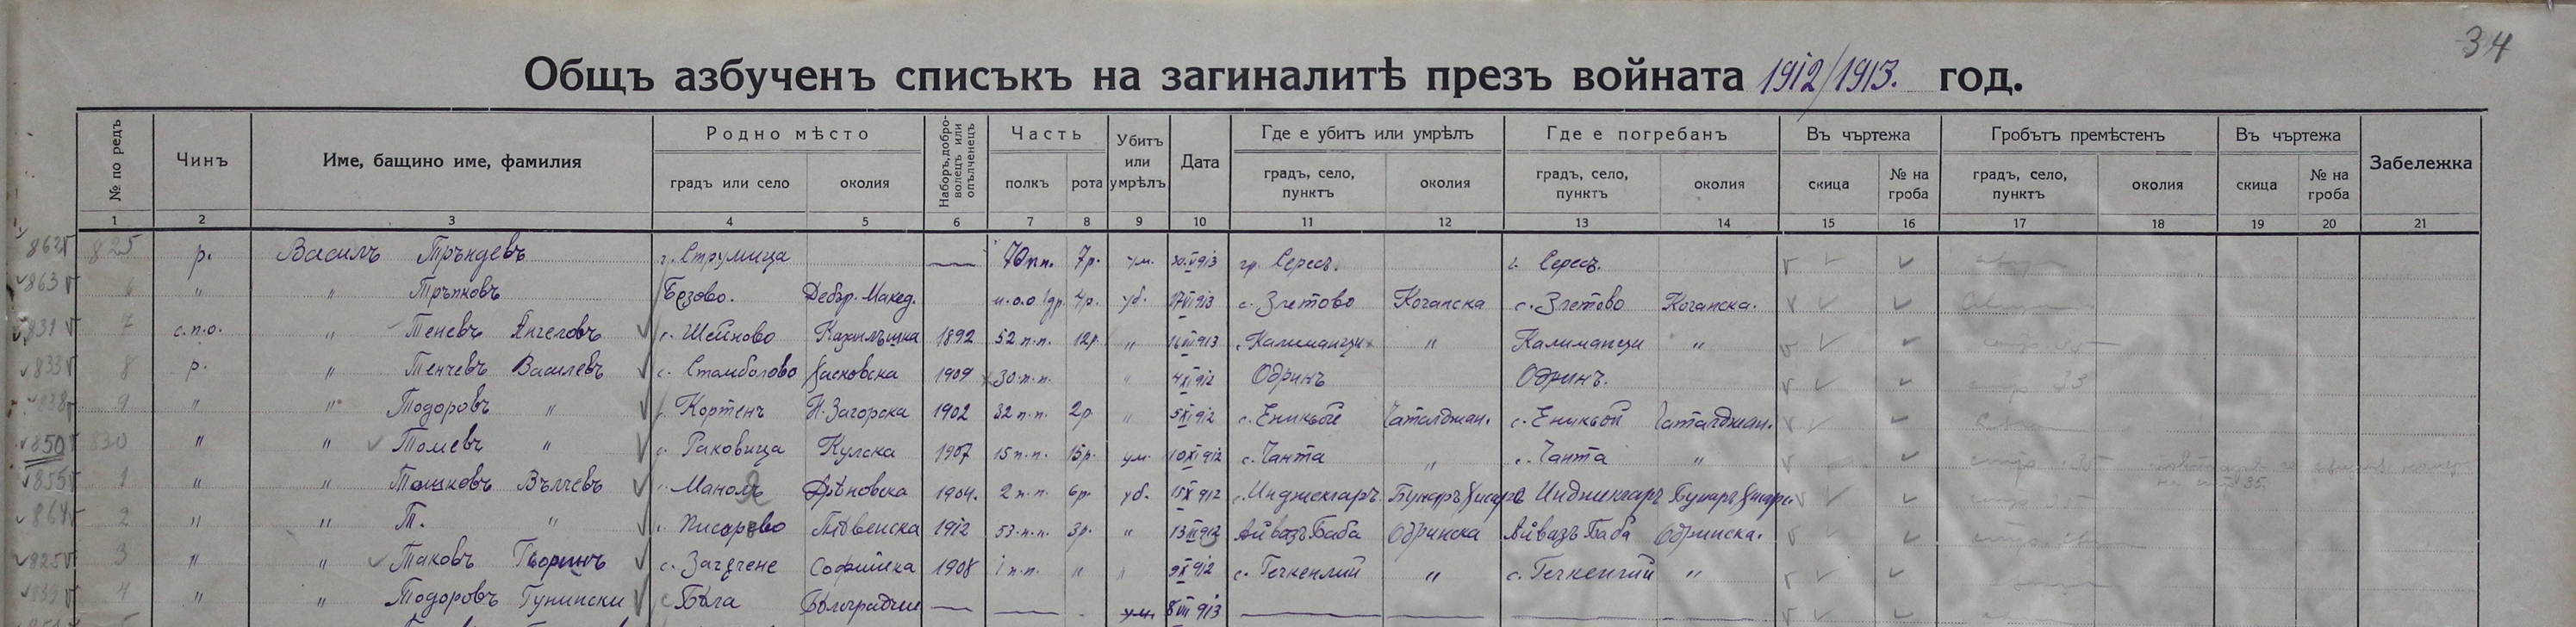 34
Общъ азбученъ списъкъ на загиналитѣ презъ войната 1912/1913. год.
№ по редъ Чинъ Име, бащино име, фамилия Родно мѣсто градъ или село околия Наборъ, доброволецъ или опълченецъ Часть полкъ рота Убитъ или умрѣлъ Дата Где е убитъ или умрѣлъ градъ, село, пунктъ околия Где е погребанъ градъ, село, пунктъ околия Въ чъртежа скица № на гроба Гробътъ премѣстенъ градъ, село, пунктъ околия Въ чъртежа скица № на гроба Забележка
1 2 3 4 5 6 7 8 9 10 11 12 13 14 15 16 17 18 19 20 21
862 825 р. Василъ Тръндевъ г. Струмица — 70 п.п. 7р. ум. 30.VI 913 гр. Сересъ. г. Сересъ.
863 6 " " Тръпковъ Безово. Дебър. Макед. м.о.о 1др. 4р. уб. 17VI 913 с. Злетово Кочанска с. Злетово Кочанска.
831 7 с.п.о. " Теневъ Ангеловъ с. Шейново Казанлъшка 1892 52 п.п. 12р. " 16VII 913 Калиманци " Калиманци "
833 8 р. " Тенчевъ Василевъ с. Стамболово Хасковска 1909 30 п.п. " 4XI 912 Одринъ Одринъ.
838 9 " " Тодоровъ " с. Кортенъ Н. Загорска 1902 32 п.п. 2р " 5XI 912 с. Еникьой Чаталджан. с. Еникьой Чаталджан.
850 830 " " Томевъ " с. Раковица Кулска 1907 15 п.п. 15р. ум. 10XI 912 с. Чанта " с. Чанта " стр. 35
855 1 " " Тошковъ Вълчевъ Манолъ 1904. 2 п.п. 6р. уб. 15X 912 Бунаръ Хисаръ Бунаръ Хисаръ.
864 2 " " Т. " с. Писарево Плѣвенска 1912 53 п.п. 3р. " 13III 912 Айвазъ Баба Одринска Айвазъ Баба Одринска.
825 3 " " Таковъ с. Софийска 1908 1 п.п. " " 9X 912 с. Гечкенлий " с. Гечкенлий "
839 4 " " Тодоровъ Гунински с. Бѣла Бѣлоградчи — — - ум. 8VII 913 — —